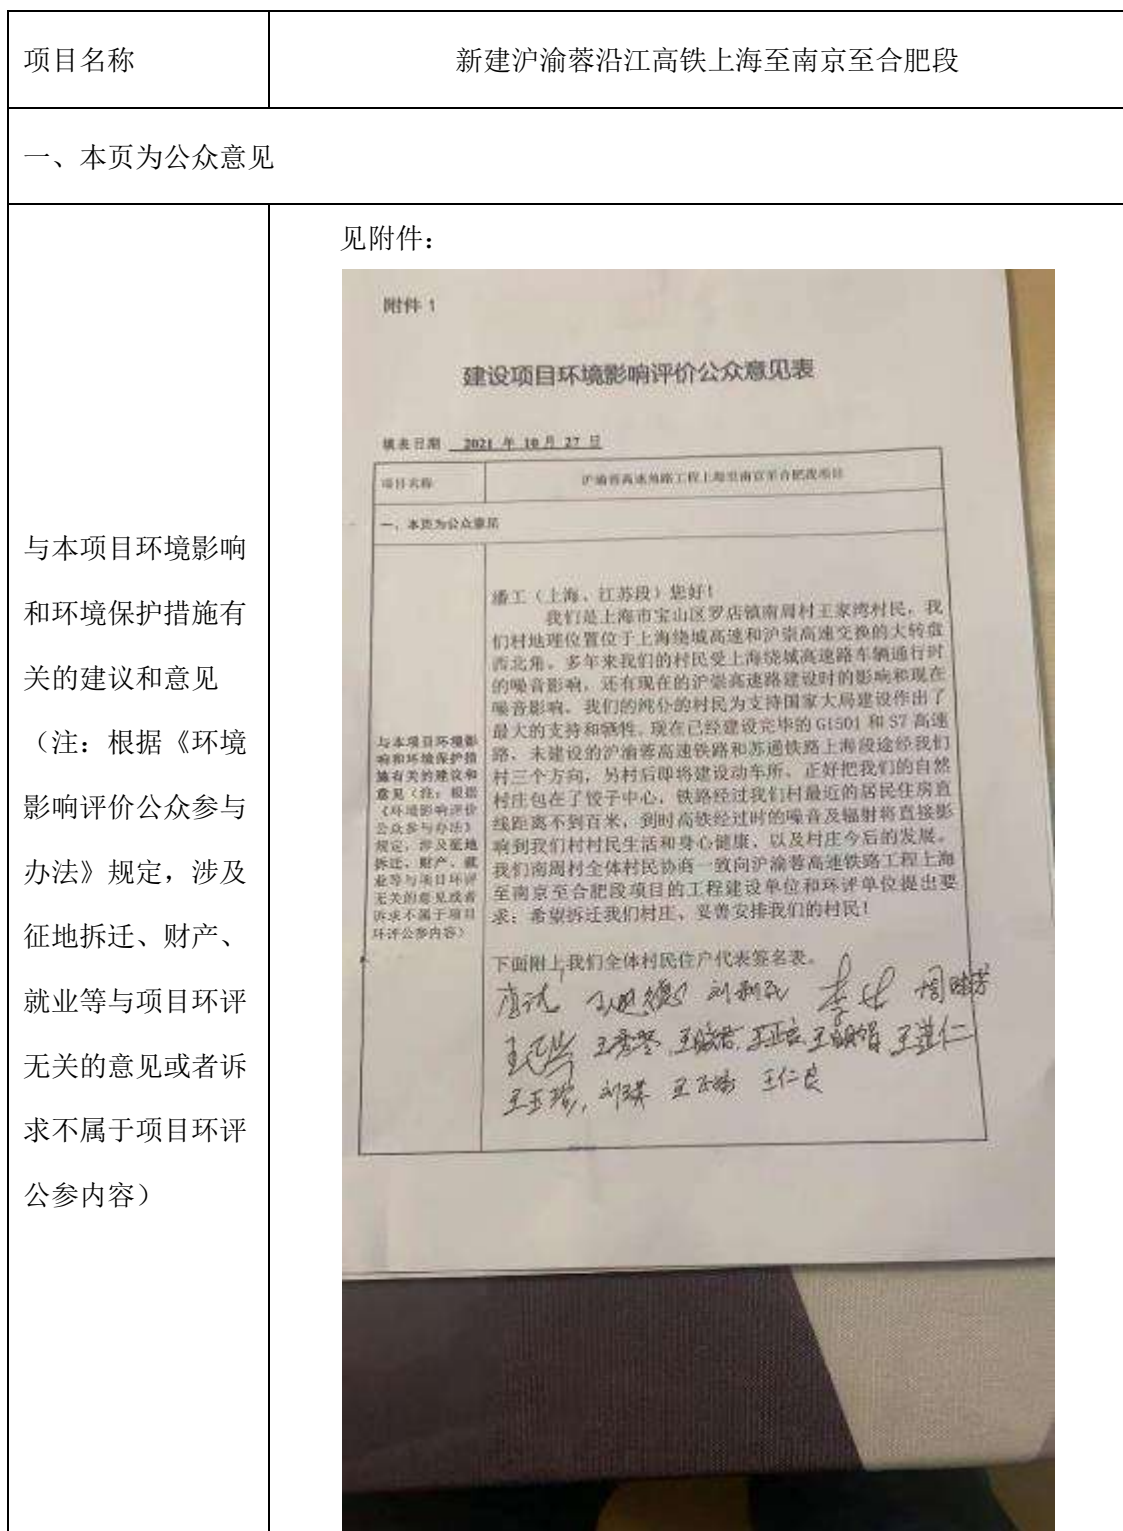 项目名称
新建沪渝蓉沿江高铁上海至南京至合肥段
一、本页为公众意见
与本项目环境影响
和环境保护措施有
关的建议和意见
（注：根据《环境
影响评价公众参与
办法》规定，涉及
征地拆迁、财产、
就业等与项目环评
无关的意见或者诉
求不属于项目环评
公参内容）
见附件：
附件 1
建设项目环境影响评价公众意见表
填表日期 2021 年 10 月 27 日
项目名称
沪渝蓉高速铁路工程上海至南京至合肥段项目
一、本页为公众意见
与本项目环境影
响和环境保护措
施有关的建议和
意见（注：根据
《环境影响评价
公众参与办法》
规定，涉及征地
拆迁、财产、就
业等与项目环评
无关的意见或者
诉求不属于项目
环评公参内容）
潘工（上海、江苏段）您好！
我们是上海市宝山区罗店镇南周村王家湾村民，我
们村地理位置位于上海绕城高速和沪崇高速交换的大转盘
西北角。多年来我们的村民受上海绕城高速路车辆通行时
的噪音影响，还有现在的沪崇高速路建设时的影响和现在
噪音影响。我们的纯朴的村民为支持国家大局建设作出了
最大的支持和牺牲。现在已经建设完毕的 G1501 和 S7 高速
路、未建设的沪渝蓉高速铁路和苏通铁路上海段途经我们
村三个方向，另村后即将建设动车所，正好把我们的自然
村庄包在了饺子中心，铁路经过我们村最近的居民住房直
线距离不到百米，到时高铁经过时的噪音及辐射将直接影
响到我们村村民生活和身心健康，以及村庄今后的发展。
我们南周村全体村民协商一致向沪渝蓉高速铁路工程上海
至南京至合肥段项目的工程建设单位和环评单位提出要
求：希望拆迁我们村庄、妥善安排我们的村民！
下面附上我们全体村民住户代表签名表。
王进仁
刘瑛
王仁良